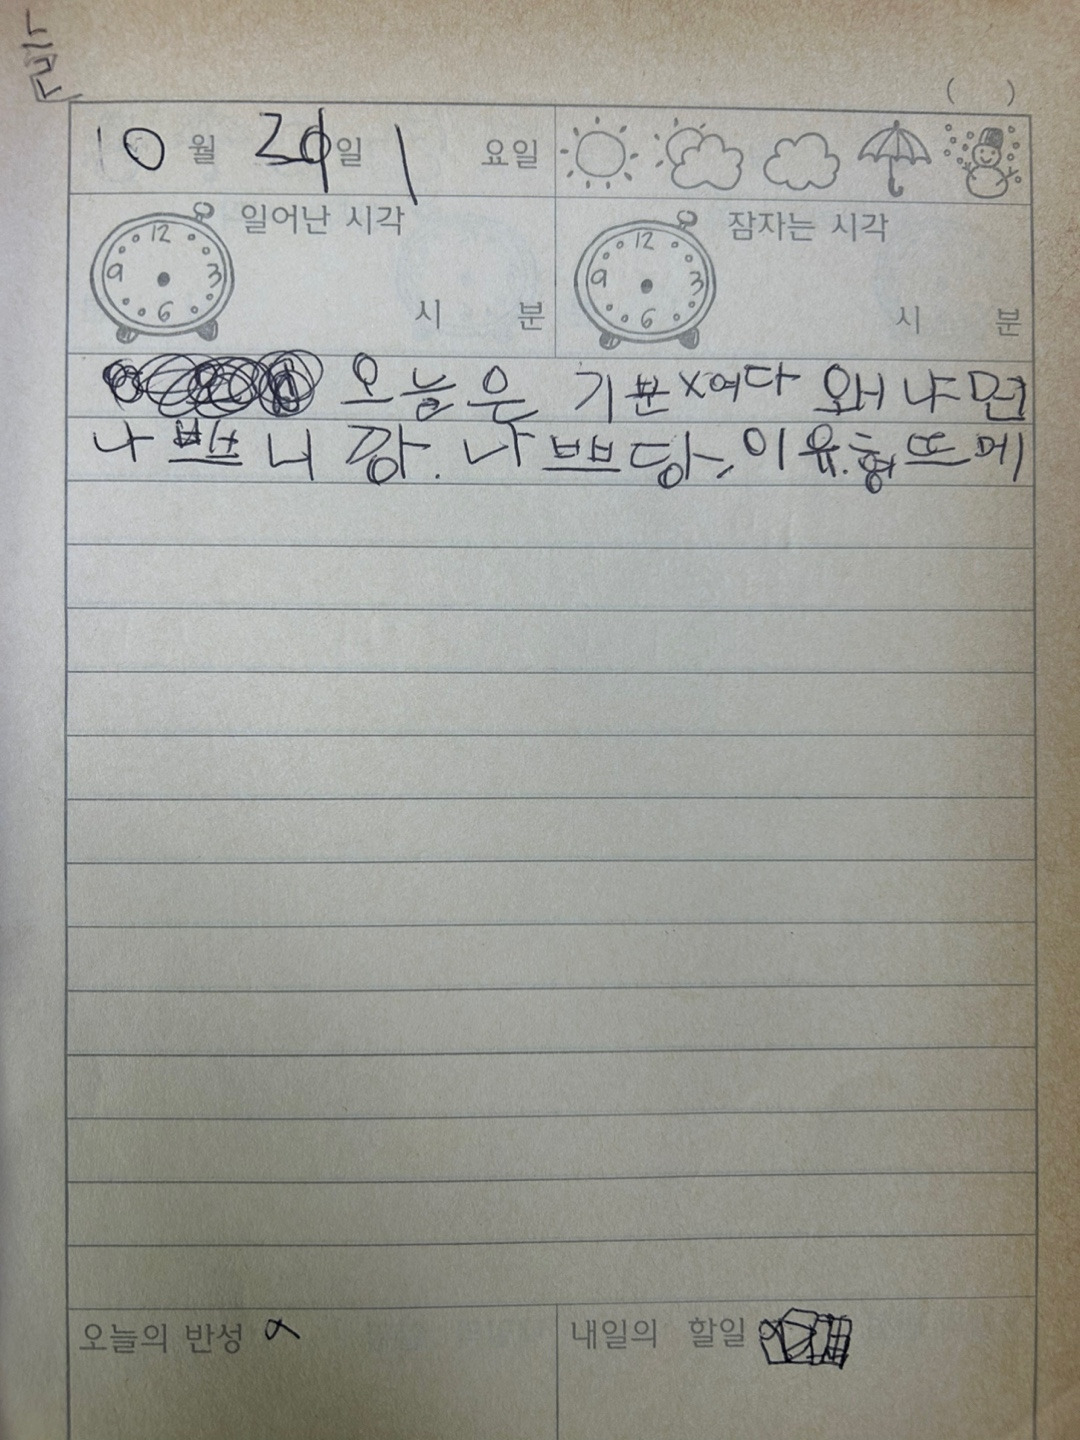 ( )
10 월 일 요일
일어난 시각 잠자는 시각
12 3 6 9 12 3 6 9
시 분 시 분
오늘은 기분x여다 왜냐면
나쁘니깡. 나쁘당, 이유.형뜨메
오늘의 반성 내일의 할일